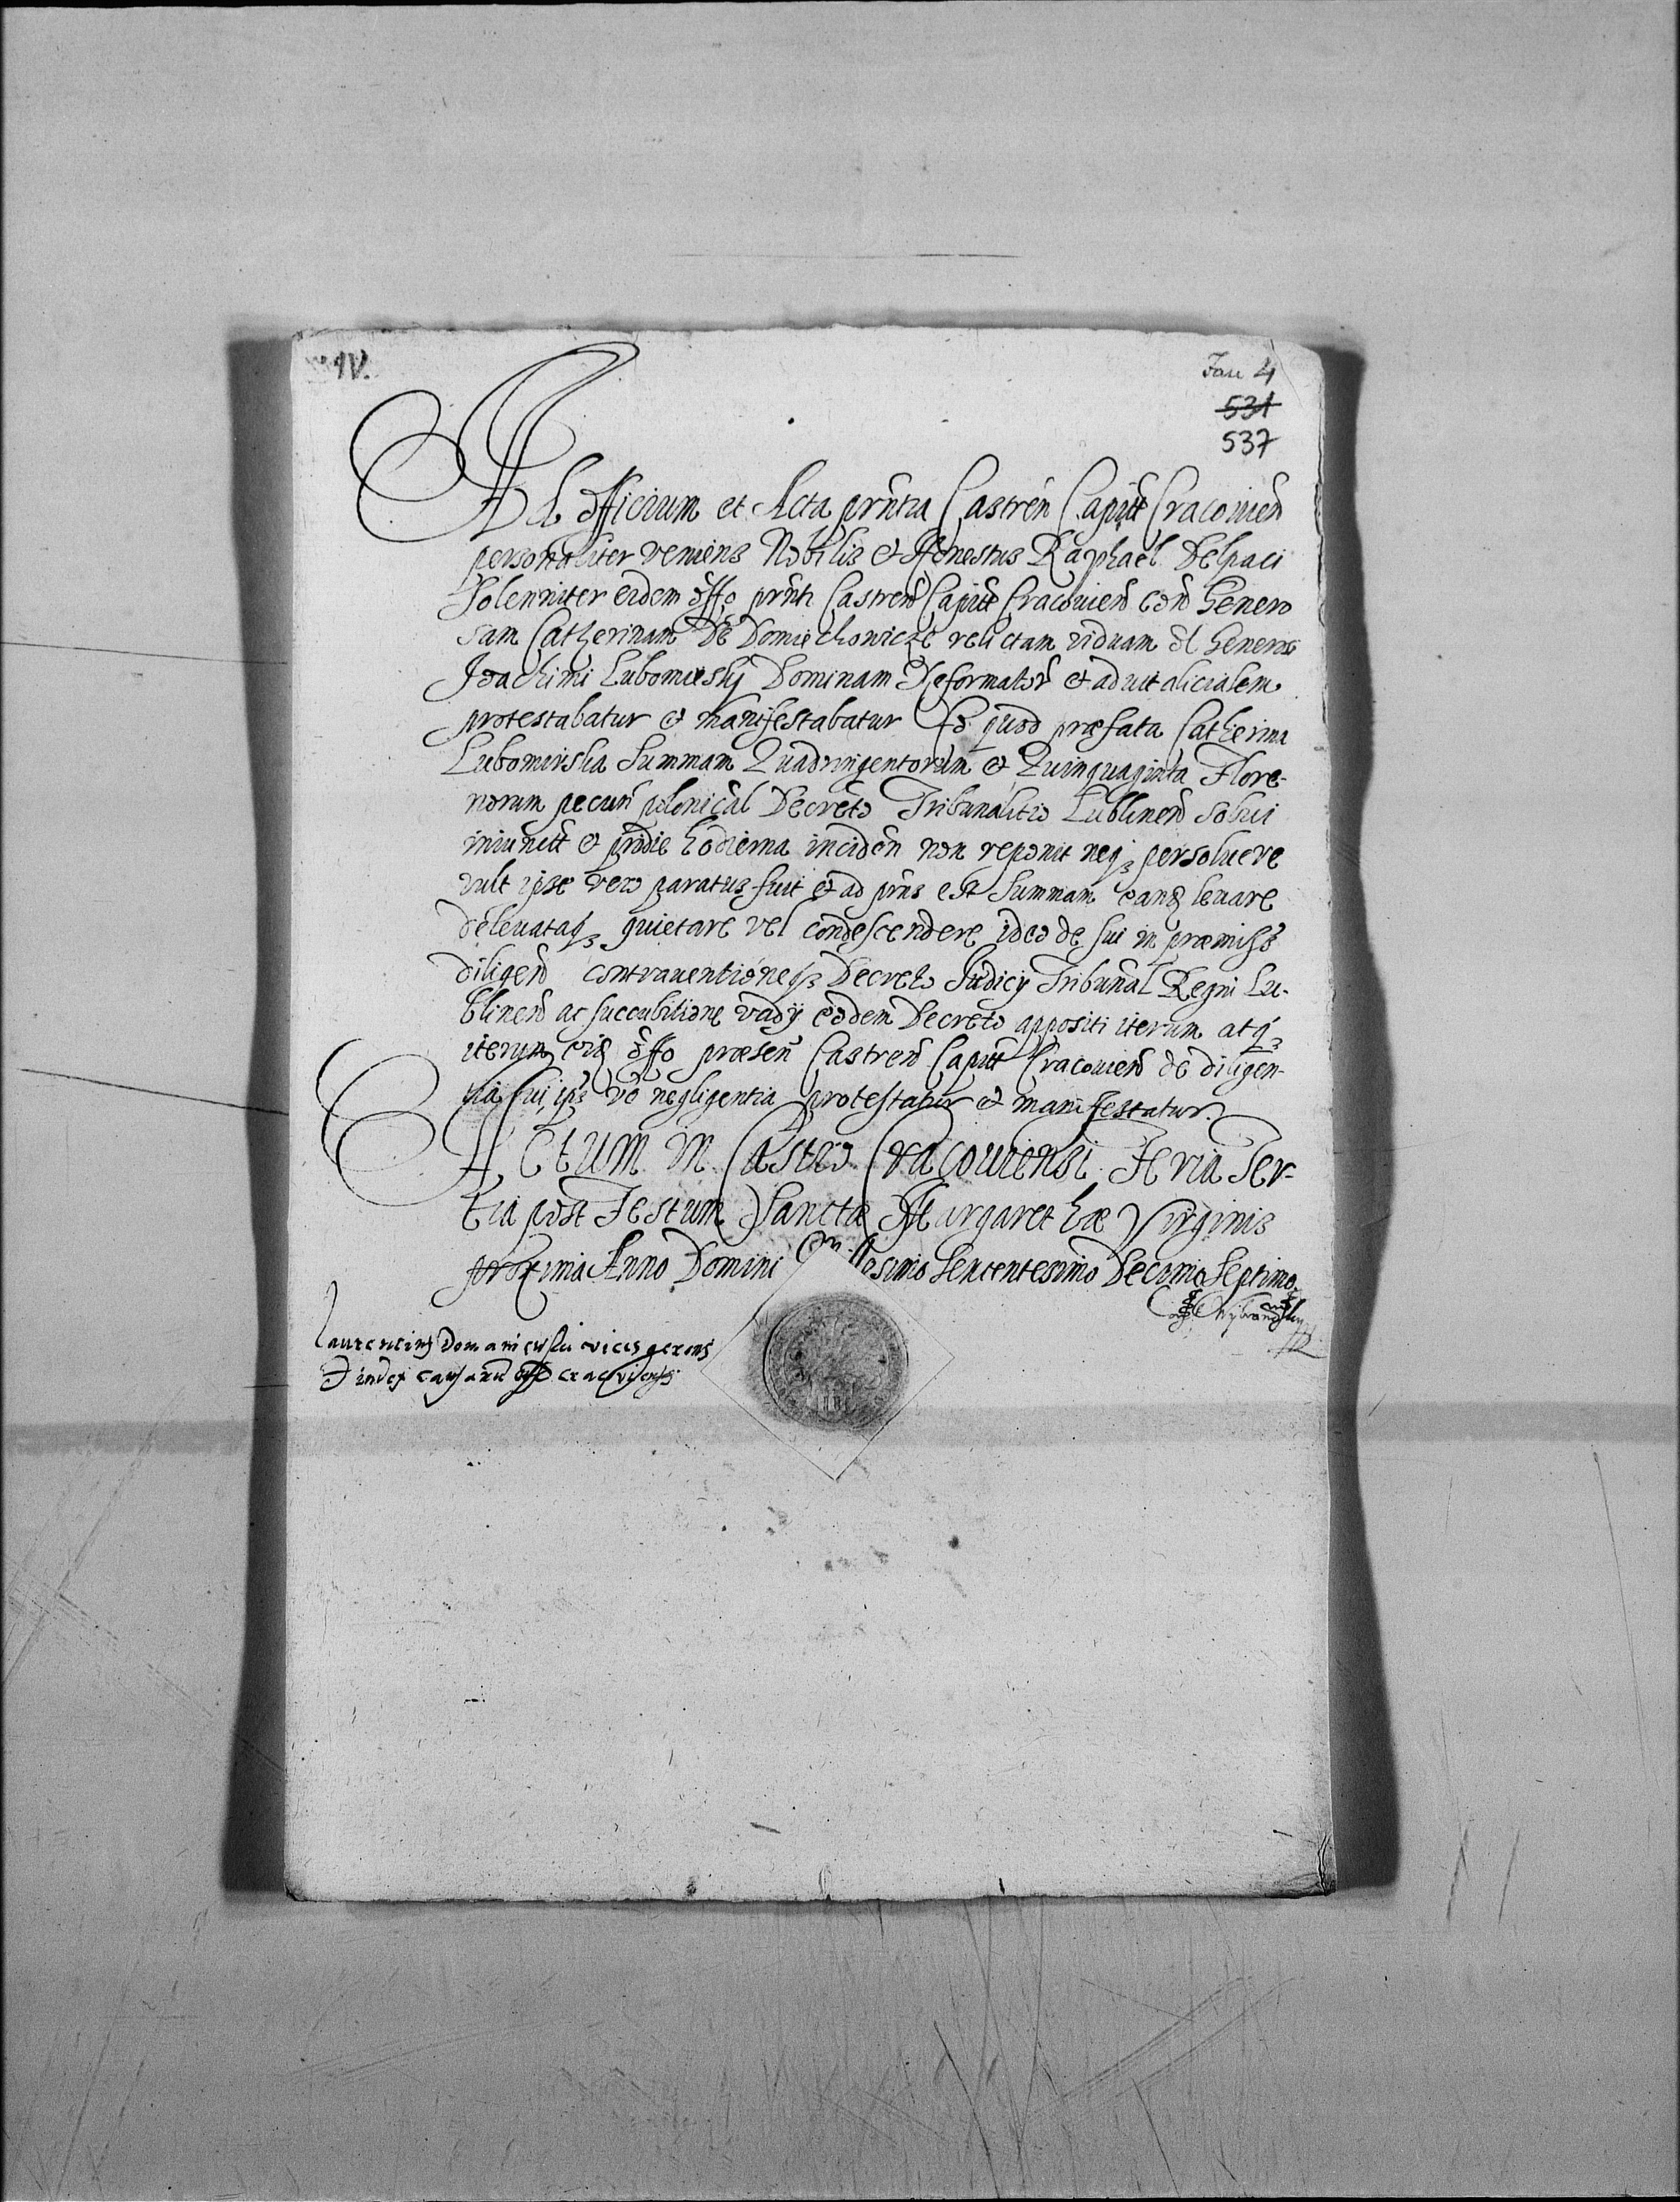 IV.
Fau 4
531
537
AD Officium et Acta prñtia Castrén Capitt Cracouień
personaliter veniens Nobilis et Honestus Raphael Delpaci
Solenniter eidem offo prñti Castreń Capitt Cracouień coñ Genero
sam Catherinam De Domiechowicze relictam viduam ol Generosi
Joachimi Lubomirskÿ Dominam Reformator et aduitalicialem
protestabatur et manifestabatur Eo quod præfata Catherina
Lubomirska Summam Quadringentorum et Quinquaginta Flore-
norum pecun polonical Decreto Tribunalitio Lublineń solui
iniunctt et pridie hodierna inciden non reponit neqз persoluere
vult ipse vero paratus fuit et ad prńs est Summam eand leuare
deleuataqз quietare vel condescendere ideo de sui in præmiss
diligeń contrauentioneqз Decreto Judicÿ Tribunal Regni Lu-
blineń ac succubitione vadÿ eodem Decreto appositi iterum atqз
iterum offo præseń Castreń Capitt Cracouień de diligen-
tia sui ips vo negligentia protestatur et manifestatur.
ACtum in Castro Cracouiensi Feria Ter-
tia post Festum Sanctæ Margarethæ Virginis
proxima Anno Domini M esimo Sexcentesimo Decimo Septimo.
Laurentius Domaniewski vices gerens
Judex Cracouiensis